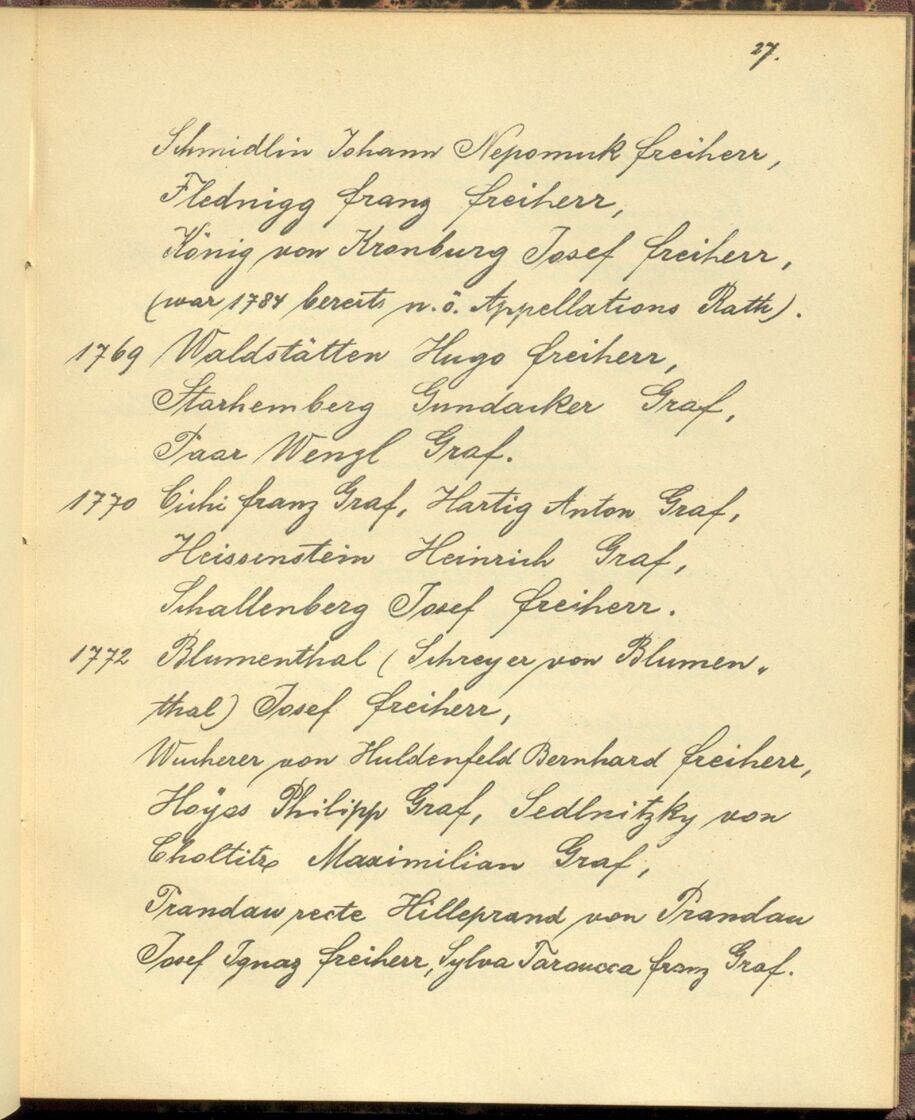 27.
Schmidlin Johann Nepomuk Freiherr,
Flednigg Franz Freiherr,
König von Kronburg Josef Freiherr,
(war 1784 bereits n. ö. Appellations Rath).
1769 Waldstätten Hugo Freiherr,
Starhemberg Gundacker Graf,
Paar Wenzl Graf.
1770 Cichi Franz Graf, Hartig Anton Graf,
Heissenstein Heinrich Graf,
Schallenberg Josef Freiherr.
1772 Blumenthal (Schreyer von Blumen„
thal) Josef Freiherr,
Wucherer von Huldenfeld Bernhard Freiherr,
Hoÿos Philipp Graf, Sedlnitzky von
Choltitz Maximilian Graf,
Prandau recte Hilleprand von Prandau
Josef Ignaz Freiherr, Sylva Taroucca Franz Graf.